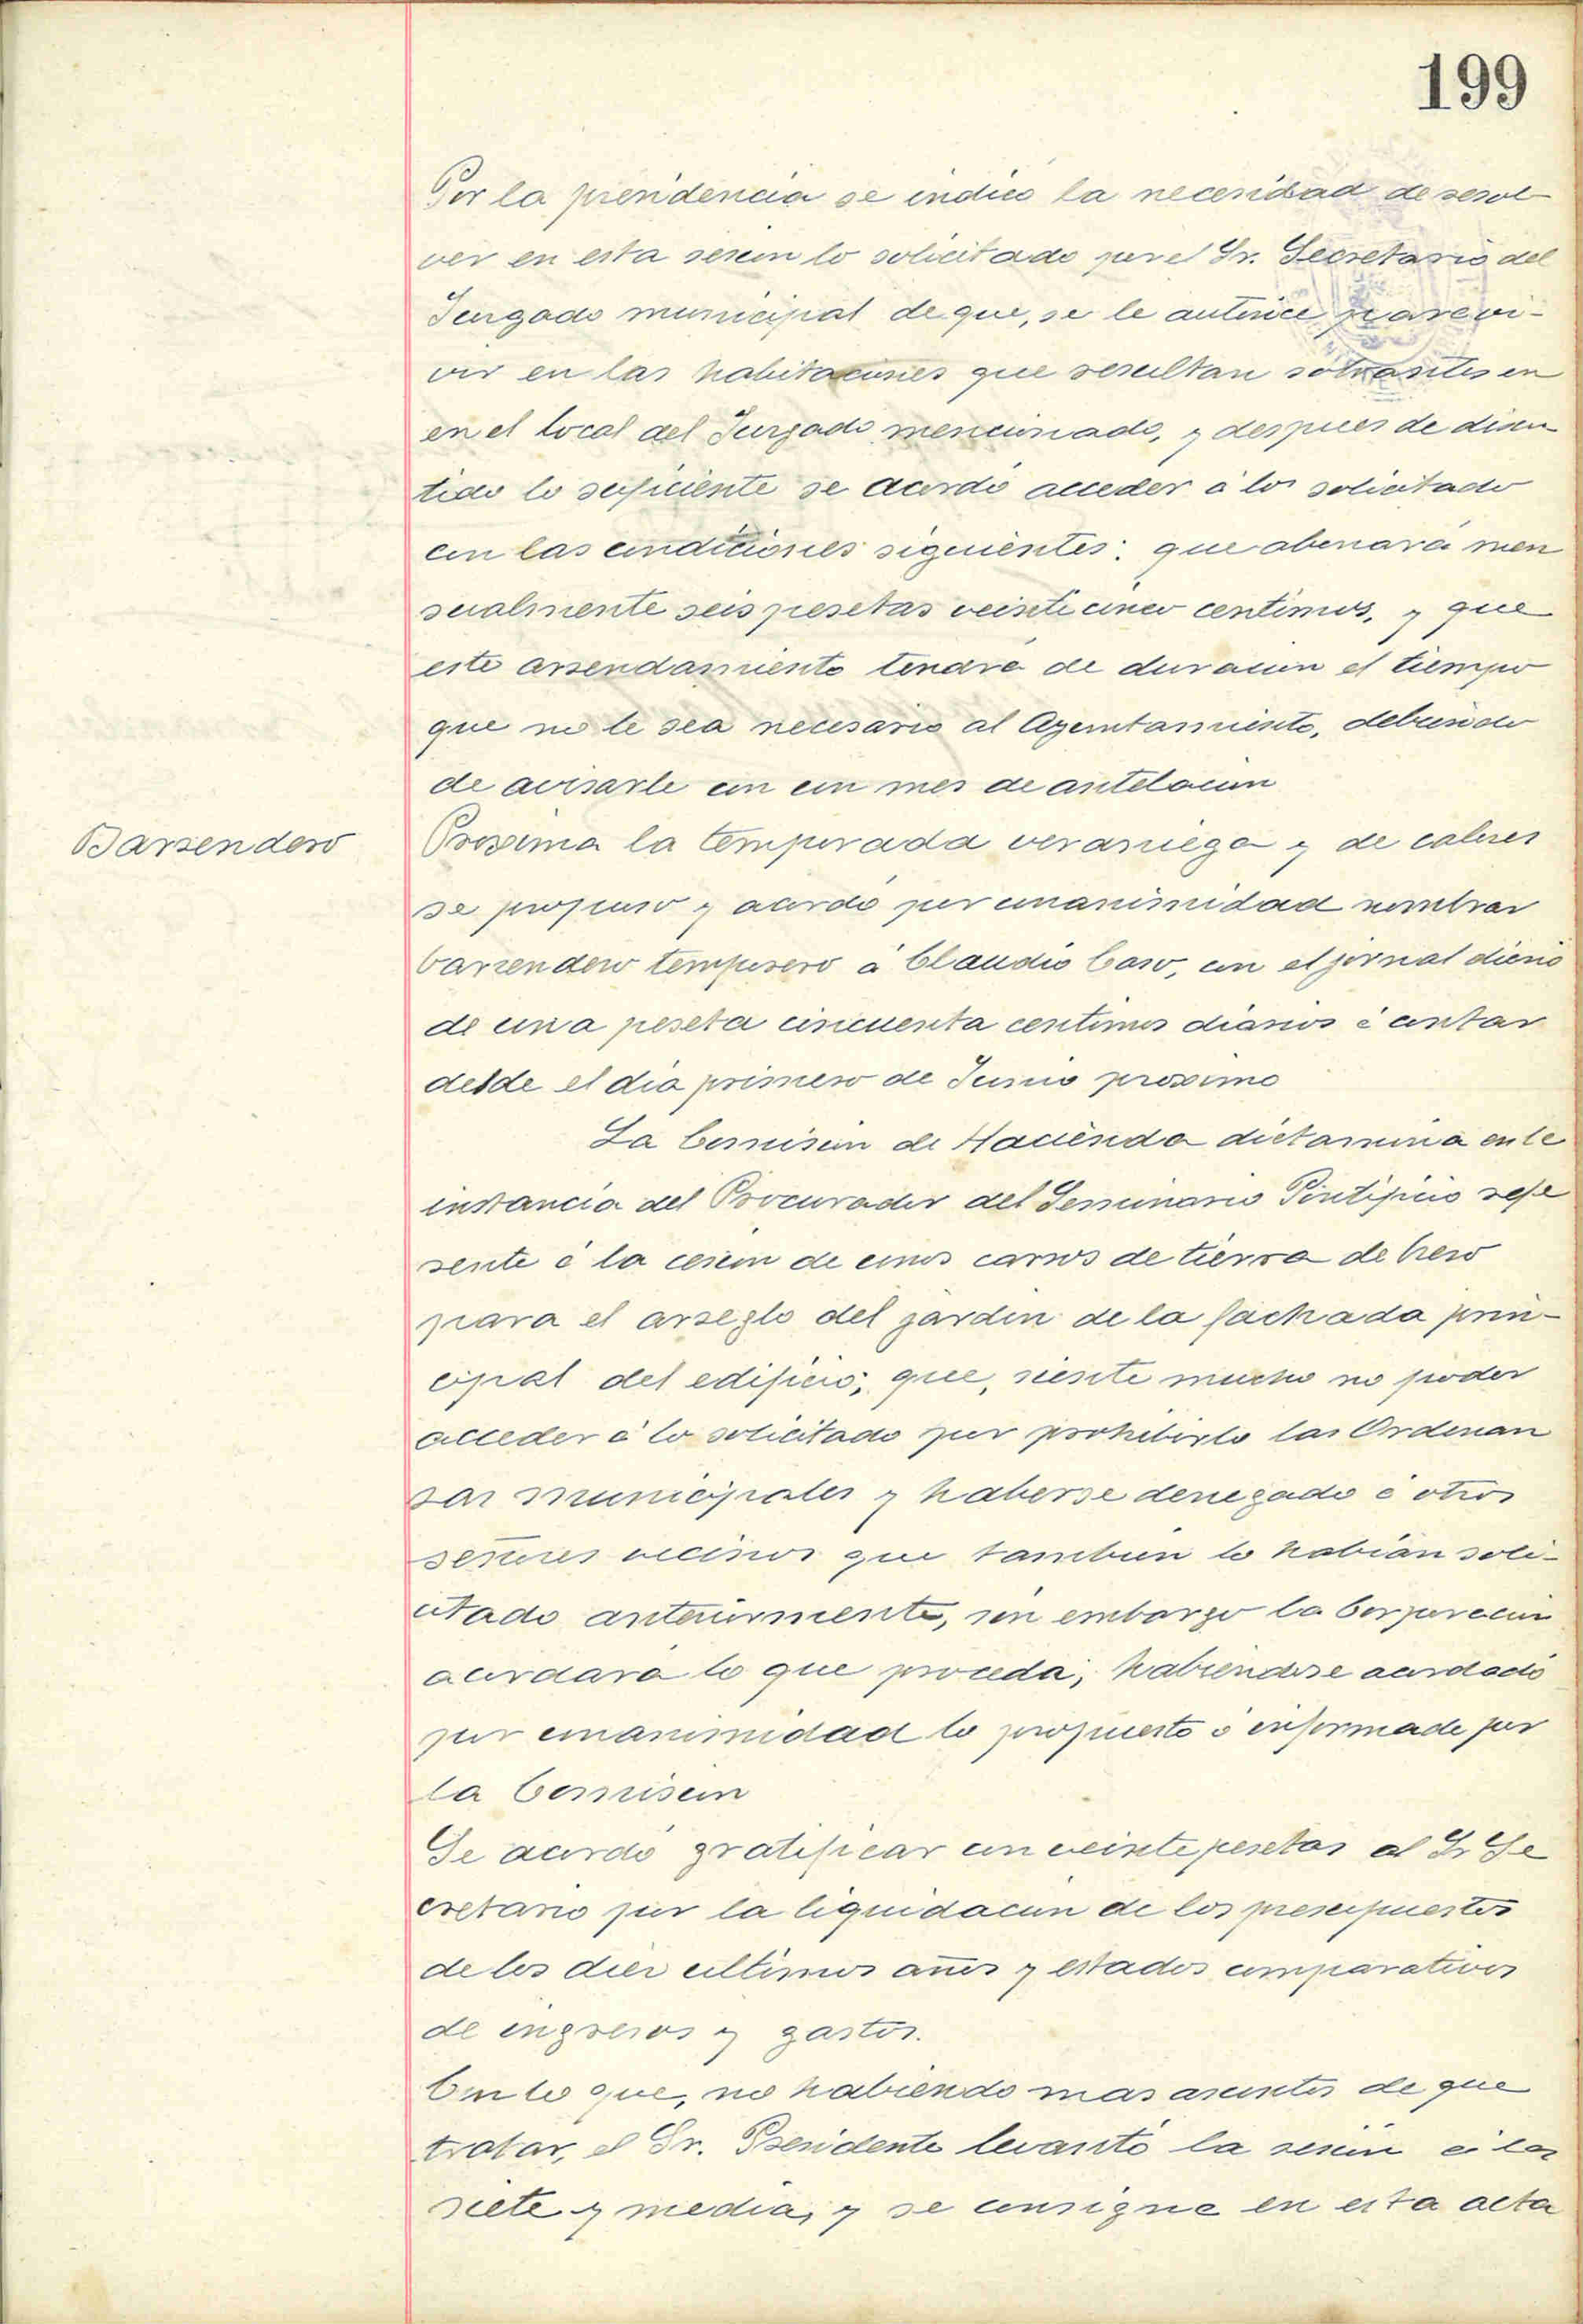 199
Por la presidencia se indicó la necesidad de resol-
ver en esta sesion lo solicitado por el Sr. Secretario del
Juzgado municipal de que, se le autorice para vi-
vir en las habitaciones que resultan sobrantes en
en el local del Juzgado mencionado, y despues de discu
tido lo suficiente se acordó acceder á lo solicitado
con las condiciones siguientes: que abonará men
sualmente seis pesetas veinticinco centimos, y que
este arrendamiento tendrá de duracion el tiempo
que no le sea necesario al Ayuntamiento, debiendo
de avisarle con un mes de antelacion
Barrendero
Proxima la temporada veraniega y de calores
se propuso y acordó por unanimidad nombrar
barrendero temporero á Claudio Caso, con el jornal diario
de una peseta cincuenta centimos diarios á contar
desde el dia primero de Junio proximo
La Comision de Hacienda dictamina en la
instancia del Procurador del Seminario Pontificio refe
rente á la cesion de unos carros de tierra de brero
para el arreglo del jardin de la fachada prin-
cipal del edificio, que, siente mucho no poder
acceder á lo solicitado por prohibirlo las Ordenan
zas Municipales y haberse denegado á otros
señores vecinos que tambien lo habian soli-
citado anteriormente, sin embargo la Corporacion
acordará lo que proceda; habiendose acordado
por unanimidad lo propuesto ó informado por
la Comision
Se acordó gratificar con veinte pesetas al Sr. Se
cretario por la liquidacion de los presupuestos
de los diez ultimos años y estados comparativos
de ingresos y gastos.
Con lo que, no habiendo mas asuntos de que
tratar, el Sr. Presidente levantó la sesion á las
siete y media, y se consigna en esta acta